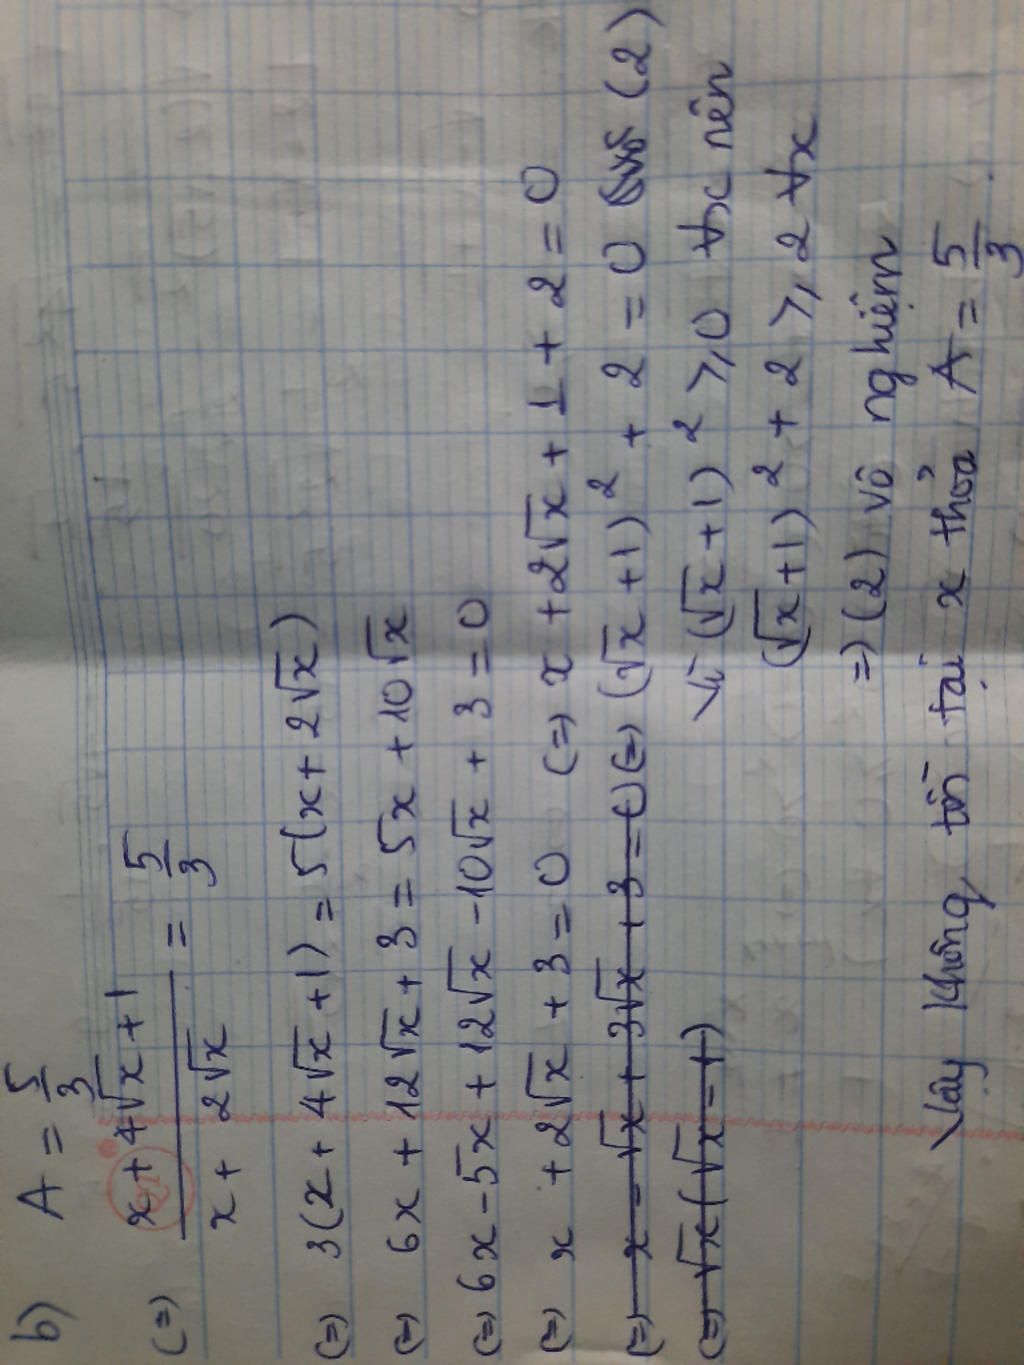 b) A = 5/3
(=) x + 4√x + 1 / x + 2√x = 5/3
(=) 3(x + 4√x + 1) = 5(x + 2√x)
(=) 6x + 12√x + 3 = 5x + 10√x
(=) 6x - 5x + 12√x - 10√x + 3 = 0
(=) x + 2√x + 3 = 0 (=) x + 2√x + 1 + 2 = 0
(=) x - √x + 3√x + 3 = 0 (=) (√x + 1)² + 2 = 0 (2)
(=) √x(√x - 1)
Vì (√x + 1)² ⩾ 0 ∀x nên
(√x + 1)² + 2 ⩾ 2 ∀x
=) (2) vô nghiệm
Vậy không tồn tại x thỏa A = 5/3.